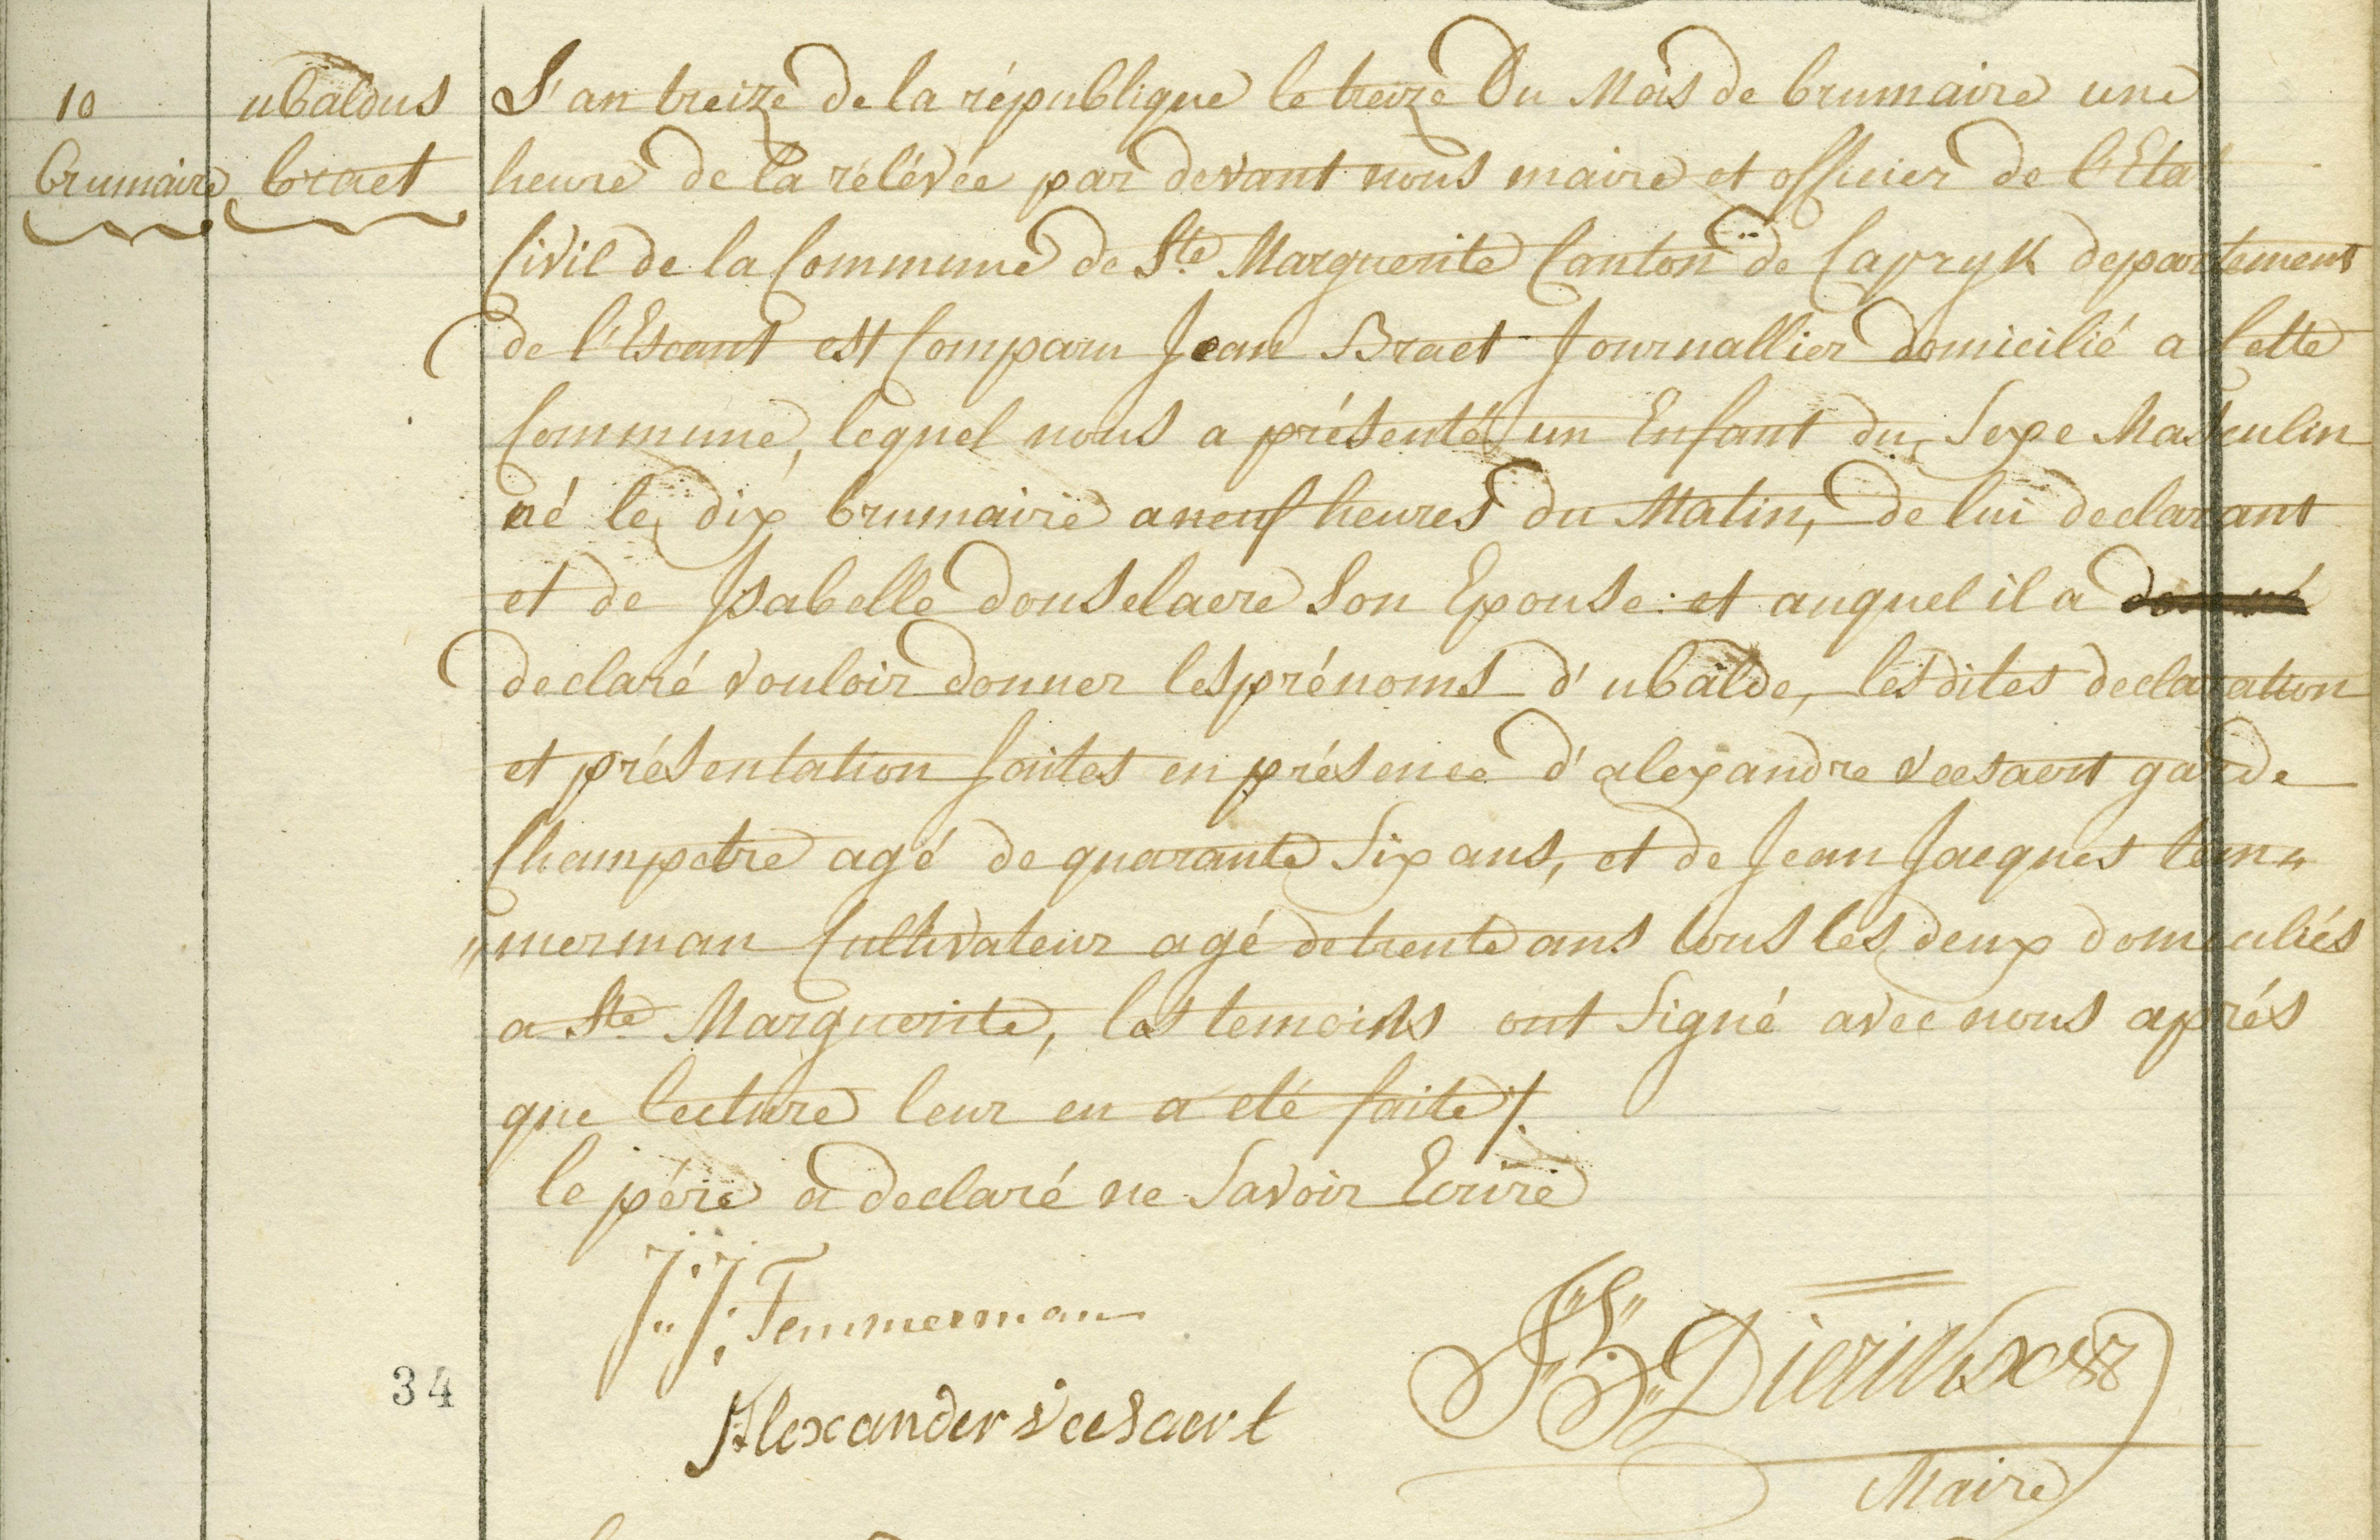 10
brumaire
ubaldus
braet
L'an treize de la république le treize Du Mois de brumaire une
heure de la rélévée par devant nous maire et officier de l'Etat
Civil de la Commune de Ste Marguerite Canton de Capryk departement
de l'Escaut est Comparu Jean Braet Journallier domicilié a Cette
Commune, lequel nous a présenté un Enfant du Sexe Masculin
né le dix brumaire a neuf heures du Matin, de lui declarant
et de Isabelle donselaere Son Epouse: et auquel il a donné
declaré vouloir donner les prénoms d'ubalde, les dites declaration
et présentation faites en présence d'alexandre veesaert garde
Champetre agé de quarante Six ans, et de Jean Jacques tem„
„merman Cultivateur agé de trente ans tous les deux domiciliés
a Ste Marguerite, les temoins ont Signé avec nous aprés
que lecture leur en a eté faite /.
le pére a declaré ne Savoir Ecrire
J: J: Temmerman
Alexander veesaert
Dierinkx
Maire
34